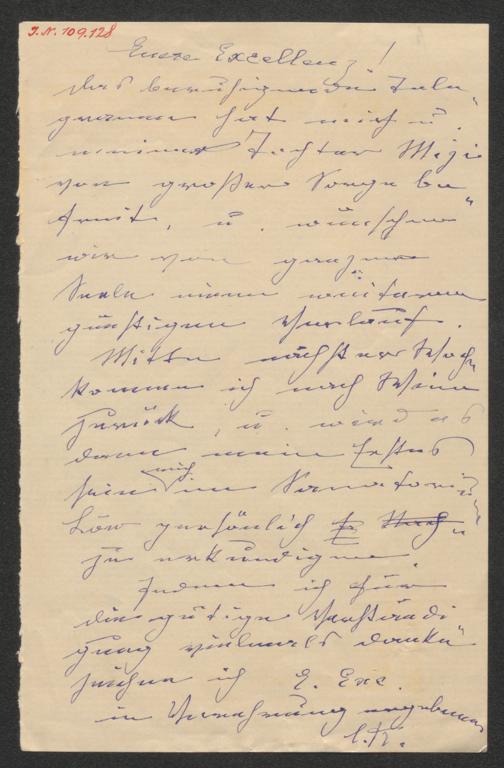 J.N. 109.128
Eurer Excellenz!
Das beruhigende Tele„
gramm hat mich u.
meine Tochter Mizi
von großer Sorge be„
freit, u. wünschen
wir von ganzer
Seele einen weiteren
günstigen Verlauf.
Mitte nächster Woche
komme ich nach Wien
zurück, u. wird es
dann mein Erstes
sein mich im Sanatorium
Löw persönlich
zu erkundigen.
Indem ich für
die gütige Verständi
gung vielmals danke
zeichne ich E. Exc.
in Verehrung ergebener